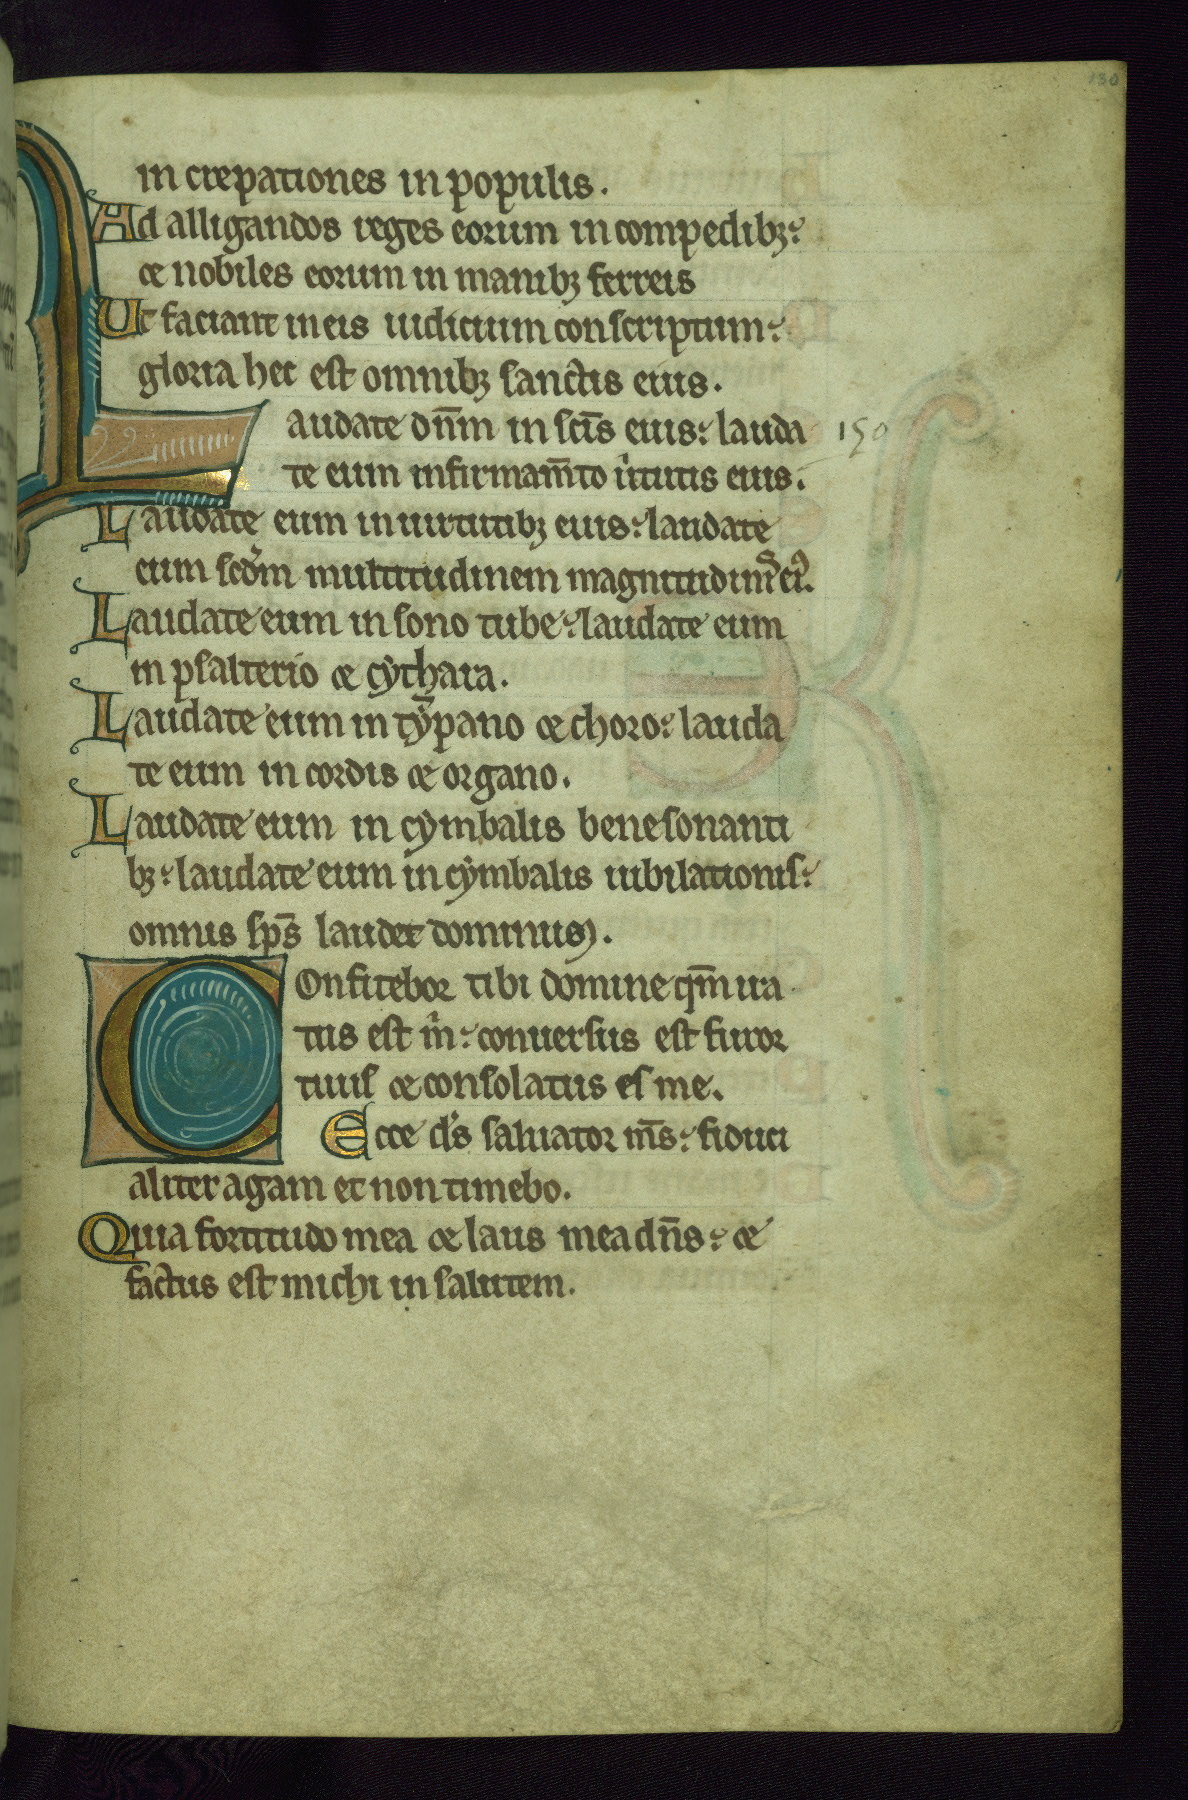 130
in crepationes in populis.
Ad alligandos reges eorum in compedibꝫ:
⁊ nobiles eorum in manibꝫ ferreis
Ut faciant in eis iudicium conscriptum:
gloria hec est omnibꝫ sanctis eius.
Laudate dn̄m in sc̄is eius: lauda 150
te eum in firmam̄to u̾tutis eius.
Laudate eum in uirtutibꝫ eius: laudate
eum scd̄m multitudinem magnitudinis ei᾿.
Laudate eum in sono tube: laudate eum
in psalterio ⁊ cythara.
Laudate eum in ty̅pano ⁊ choro: lauda
te eum in cordis ⁊ organo.
Laudate eum in cymbalis benesonanti
bꝫ: laudate eum in cymbalis iubilationis:
omnis sp̄s laudet dominum.
COnfitebor tibi domine qm̄ ira
tus est m̓: conuersus est furor
tuus ⁊ consolatus es me.
Ecce d̓s saluator m̄s: fiduci
aliter agam et non timebo.
Quia fortitudo mea ⁊ laus mea dn̄s: ⁊
factus est michi in salutem.